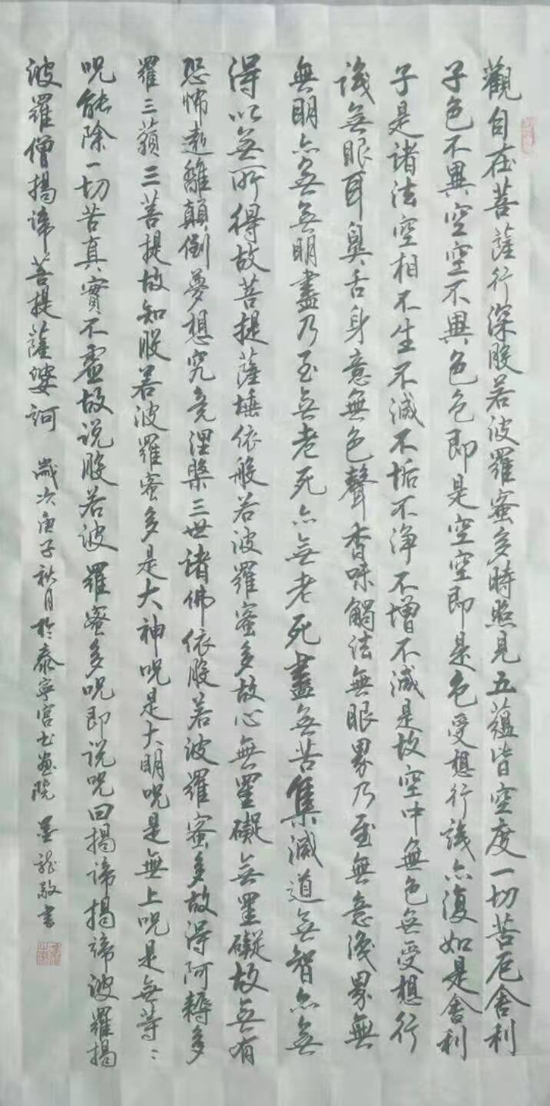 觀自在菩薩行深般若波羅蜜多時照見五蘊皆空度一切苦厄舍利
子色不異空空不異色色即是空空即是色受想行識亦復如是舍利
子是諸法空相不生不滅不垢不淨不增不減是故空中無色無受想行
識無眼耳鼻舌身意無色聲香味觸法無眼界乃至無意識界無
無明亦無無明盡乃至無老死亦無老死盡無苦集滅道無智亦無
得以無所得故菩提薩埵依般若波羅蜜多故心無罣礙無罣礙故無有
恐怖遠離顛倒夢想究竟涅槃三世諸佛依般若波羅蜜多故得阿耨多
羅三藐三菩提故知般若波羅蜜多是大神呪是大明呪是無上呪是無等〻
呪能除一切苦真實不虛故說般若波羅蜜多呪即說呪曰揭諦揭諦波羅揭
波羅僧揭諦菩提薩婆訶 歲次庚子秋月於泰寧宮書畫院 墨龍敬書